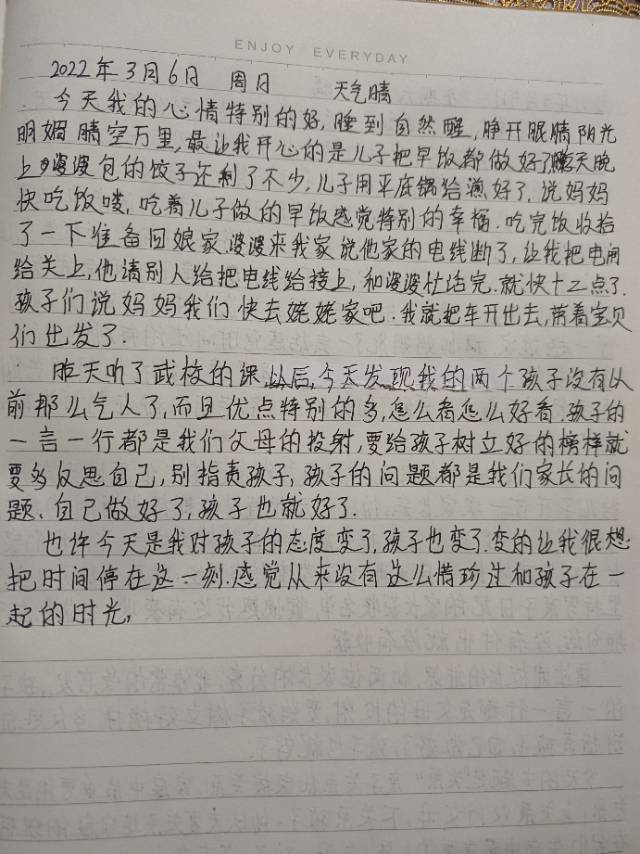 ENJOY EVERYDAY
2022年3月6日 周日 天气晴
今天我的心情特别的好,睡到自然醒,睁开眼睛阳光
明媚晴空万里,最让我开心的是儿子把早饭都做好了,昨天晚
上婆婆包的饺子还剩了不少,儿子用平底锅给煎好了,说妈妈
快吃饭喽,吃着儿子做的早饭感觉特别的幸福.吃完饭收拾
了一下准备回娘家,婆婆来我家说他家的电线断了,让我把电闸
给关上,他请别人给把电线给接上,和婆婆忙活完.就快十二点了.
孩子们说妈妈我们快去姥姥家吧.我就把车开出去,带着宝贝
们出发了.
昨天听了武校的课以后,今天发现我的两个孩子没有以
前那么气人了,而且优点特别的多,怎么看怎么好看.孩子的
一言一行都是我们父母的投射,要给孩子树立好的榜样就
要多反思自己,别指责孩子,孩子的问题都是我们家长的问
题、自己做好了,孩子也就好了.
也许今天是我对孩子的态度变了,孩子也变了.变的让我很想
把时间停在这一刻.感觉从来没有这么惜珍过和孩子在一
起的时光,